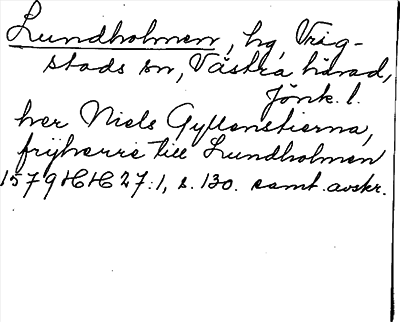 Lundholmen, hg, Vrig-
stads sn, Västra härad,
Jönk. l.
her Niels Gyllenstierna,
frijherre till Lundholmen
1579 HH 27:1, s. 130. samt. avskr.